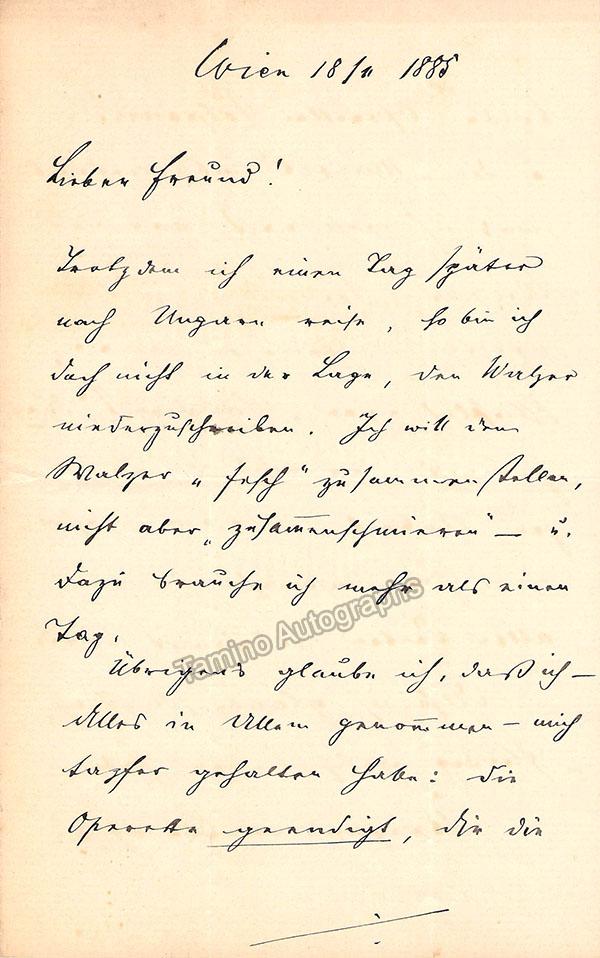 Wien 18/11 1885
Lieber Freund!
Trotzdem ich einen Tag später
nach Ungarn reise, so bin ich
doch nicht in der Lage, den Walzer
niederzuschreiben. Ich will den
Walzer „fesch" zusammenstellen,
nicht aber „zusam̅enschmieren" — u.
dazu brauche ich mehr als einen
Tag.
Tamino Autographs
Übrigens glaube ich, daß ich —
Alles in Allem genom̅en — mich
tapfer gehalten habe: die
Operette geendigt, die